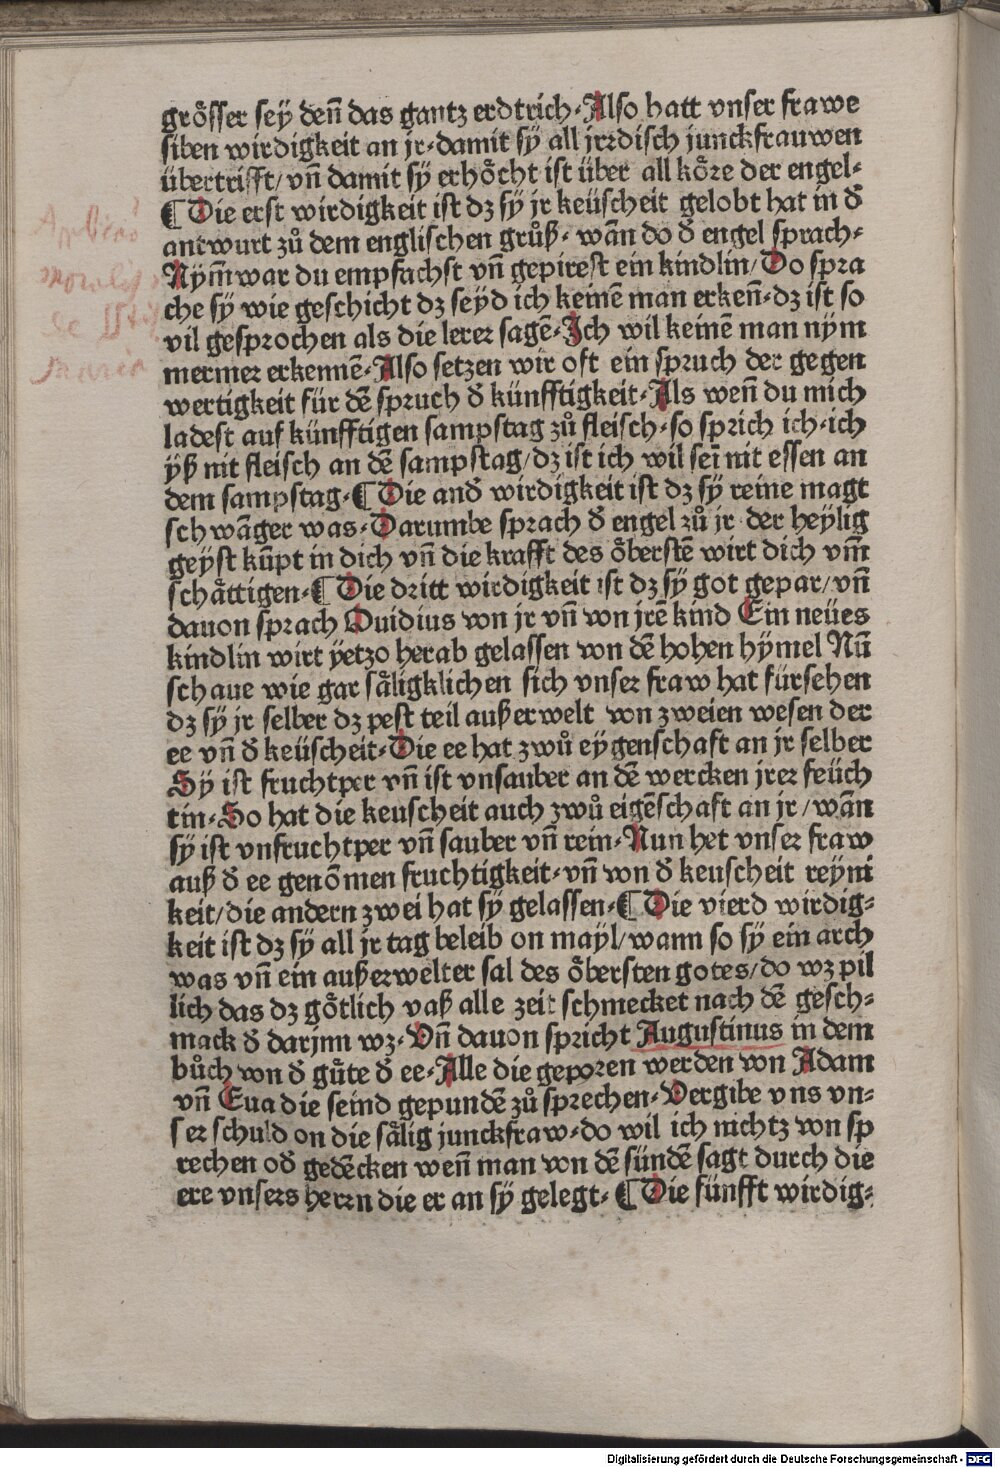 grösser sey deñ das gantz erdtrich·Also hatt vnser frawe
siben wirdigkeit an jr·damit sÿ all jrrdisch junckfrauwen
übertrifft/vñ damit sÿ erhöcht ist über all köre der engel·
¶Die erst wirdigkeit ist dz sÿ jr keüscheit gelobt hat in đ
antwurt zů dem englischen grůß· wañ do đ engel sprach·
Nym̃ war du empfachst vñ gepirest ein kindlin/Do spra
che sÿ wie geschicht dz seyd ich keinē man erkeñ·dz ist so
vil gesprochen als die lerer sagē·Ich wil keinē man nym
mermer erkennē·Also setzen wir oft ein spruch der gegen
wertigkeit für dē spruch đ künfftigkeit·Als weñ du mich
ladest auf künfftigen sampstag zů fleisch·so sprich ich·ich
ÿß nit fleisch an dē sampstag/dz ist ich wil sei nit essen an
dem sampstag·¶Die and wirdigkeit ist dz sÿ reine magt
schwanger was·Darumbe sprach đ engel zů jr der heylig
geyst kũpt in dich vñ die krafft des öberstē wirt dich vm̃
schättigen·¶Die dritt wirdigkeit ist dz sÿ got gepar/vñ
dauon sprach Ouidius von jr vñ von jrē kind Ein neües
kindlin wirt ÿetzo herab gelassen von dē hohen hÿmel Nũ
schaue wie gar säligklichen sich vnser fraw hat fürsehen
dz sÿ jr selber dz pest teil außerwelt von zweien wesen der
ee vñ đ keüscheit·Die ee hat zwů eygenschaft an jr selber
Sÿ ist fruchtper vñ ist vnsauber an dē wercken jrer feüch
tin·So hat die keuscheit auch zwů eigēschaft an jr/wañ
sÿ ist vnfruchtper vñ sauber vñ rein·Nun het vnser fraw
auß đ ee genõmen fruchtigkeit·vñ von đ keuscheit reyni
keit/die andern zwei hat sÿ gelassen·¶Die vierd wirdig·
keit ist dz sÿ all jr tag beleib on mayl/wann so sÿ ein arch
was vñ ein außerwelter sal des öbersten gotes/do wz pil
lich das dz götlich vaß alle zeit schmecket nach dē gesch·
mack đ darjnn wz·Vñ dauon spricht Augustinus in dem
bůch von đ gůte đ ee·Alle die geporen werden von Adam
vñ Eua die seind gepundē zů sprechen·Vergibe vns vn·
ser schuld on die sälig junckfraw·do wil ich nichtz von sp
rechen ođ gedēcken weñ man von dē sündē sagt durch die
ere vnsers herrn die er an sÿ gelegt·¶Die fünfft wirdig·
moralis
de
maria
Digitalisierung gefördert durch die Deutsche Forschungsgemeinschaft - DFG